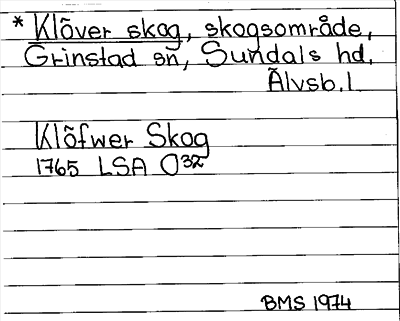 * Klöver skog, skogsområde,
Grinstad sn, Sundals hd,
Älvsb. l
Klöfwer Skog
1765 LSA O32
BMS 1974